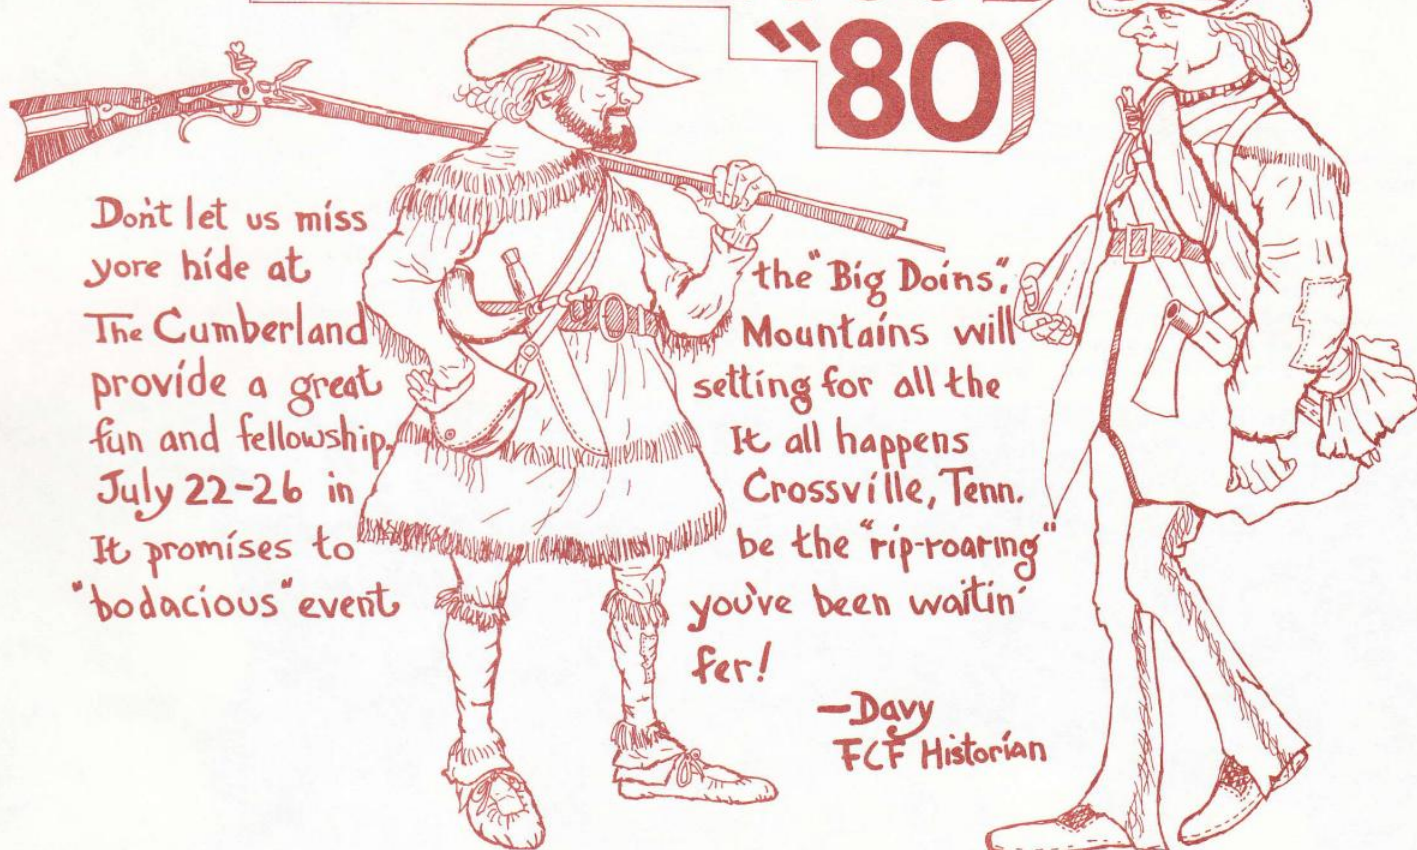 "80
Don't let us miss yore hide at the "Big Doins".
The Cumberland Mountains will
provide a great setting for all the
fun and fellowship. It all happens
July 22-26 in Crossville, Tenn.
It promises to be the "rip-roaring"
"bodacious" event you've been waitin'
fer!
—Davy
FCF Historian